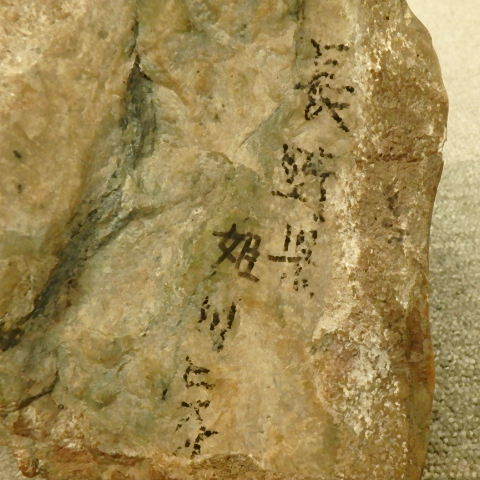 長野県
姫川産